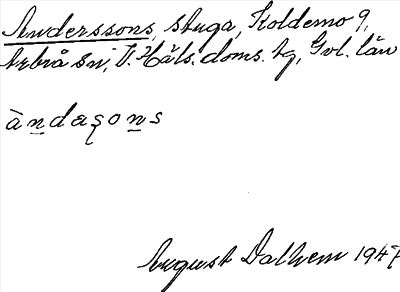 Anderssons, stuga, Koldemo 9,
Arbrå sn, V. Häls. doms. hg, Gvl. län
àndaşons
August Dalhem 1947